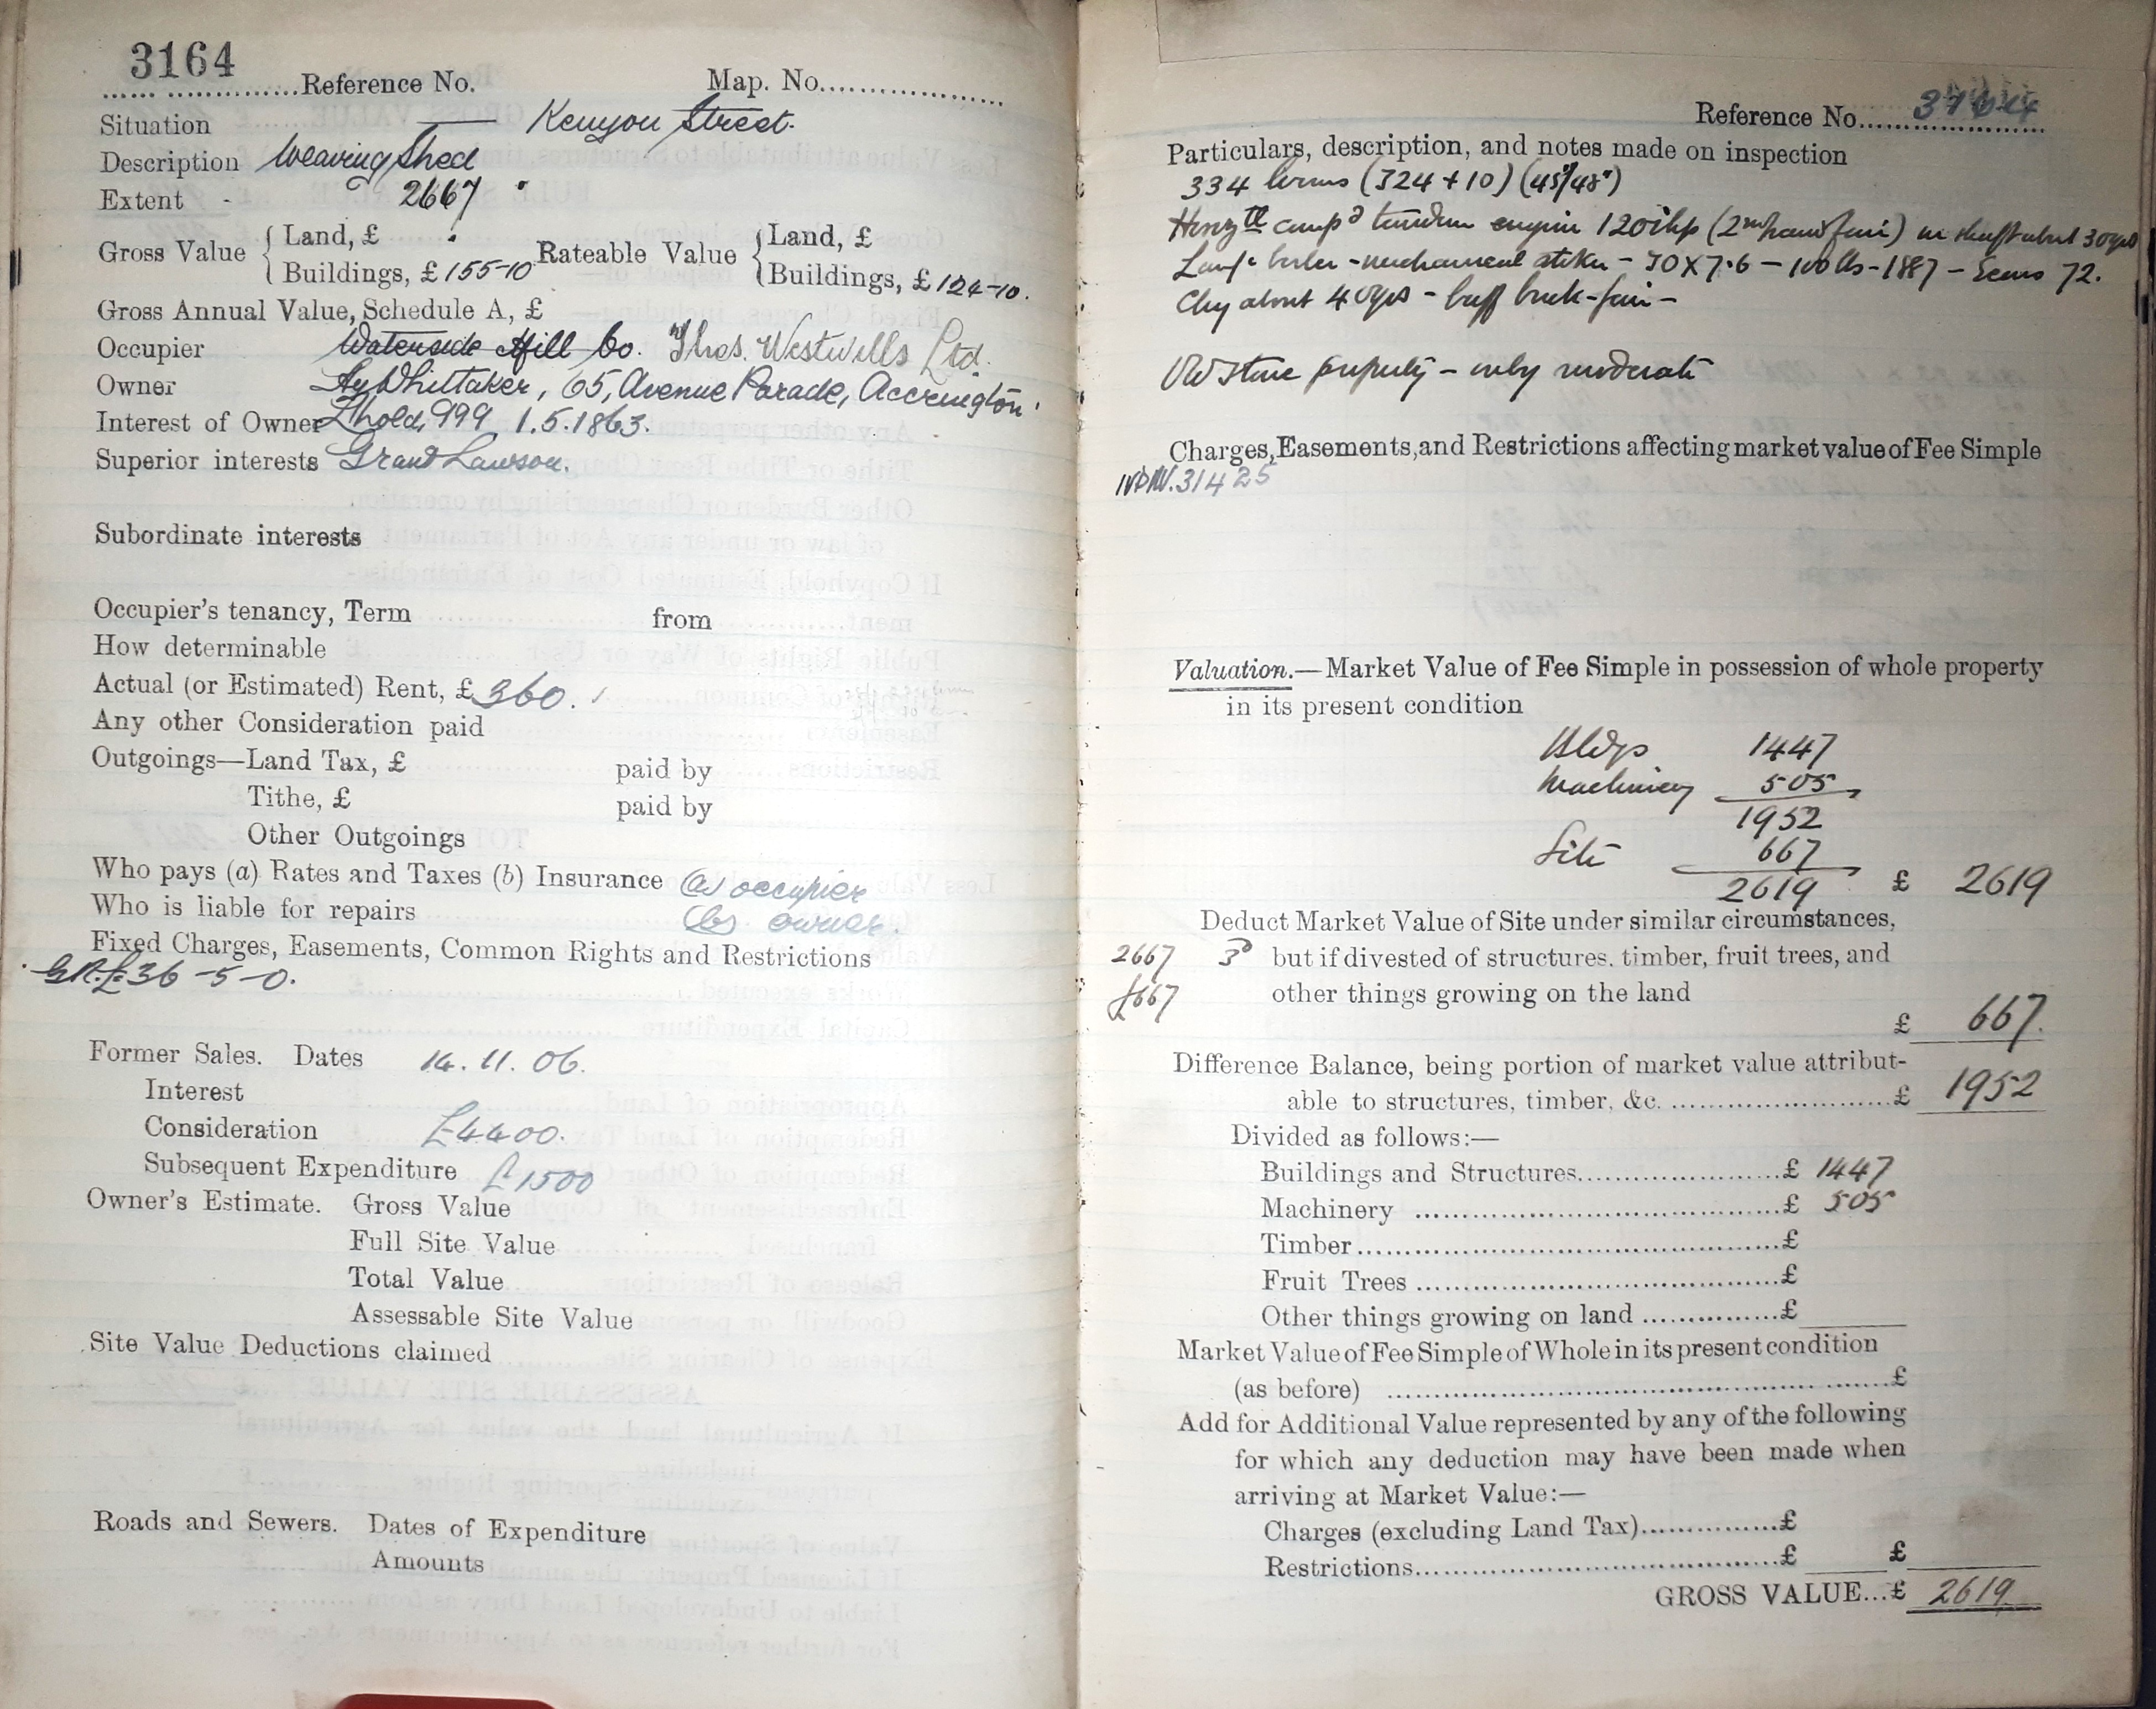 3164
Reference No. Map. No.
Situation Kenyon Street.
Description Weaving Shed
Extent - 2667
Gross Value { Land, £ Rateable Value { Land, £
Buildings, £ 155-10 Buildings, £ 124-10.
Gross Annual Value, Schedule A, £
Occupier Waterside Mill Co. Thos. Westwells Ltd.
Owner Hy Whittaker, 65, Avenue Parade, Accrington
Interest of Owner Lhold, 999 1.5.1863.
Superior interests Grant Lawson.
Subordinate interests
Occupier's tenancy, Term from
How determinable
Actual (or Estimated) Rent, £ 360.
Any other Consideration paid
Outgoings—Land Tax, £ paid by
Tithe, £ paid by
Other Outgoings
Who pays (a) Rates and Taxes (b) Insurance (a) occupier
Who is liable for repairs (b) owner.
Fixed Charges, Easements, Common Rights and Restrictions
G.R. £36-5-0.
Former Sales. Dates 14.11.06.
Interest
Consideration £4400.
Subsequent Expenditure £1500
Owner's Estimate. Gross Value
Full Site Value
Total Value
Assessable Site Value
Site Value Deductions claimed
Roads and Sewers. Dates of Expenditure
Amounts
Reference No.
Particulars, description, and notes made on inspection
334 looms (324 + 10) (45"/48")
Horiztl compd tandem engine 120 ihp (2nd hand fair) in shaft about 30 yrs
Lancr boiler - mechanical stoker - 30 X 7.6 - 100 lbs - 1887 - Econs 72.
Chy about 40 yds - buff brick - fair -
Old stone property - only moderate
Charges, Easements, and Restrictions affecting market value of Fee Simple
31425
Valuation.—Market Value of Fee Simple in possession of whole property
in its present condition
Bldgs 1447
Machinery 505
1952
Site 667
2619 £ 2619
Deduct Market Value of Site under similar circumstances,
2667 3d but if divested of structures, timber, fruit trees, and
£667 other things growing on the land
£ 667.
Difference Balance, being portion of market value attribut-
able to structures, timber, &c. £ 1952
Divided as follows:—
Buildings and Structures £ 1447
Machinery £ 505
Timber £
Fruit Trees £
Other things growing on land £
Market Value of Fee Simple of Whole in its present condition
(as before) £
Add for Additional Value represented by any of the following
for which any deduction may have been made when
arriving at Market Value:—
Charges (excluding Land Tax) £
Restrictions £ £
GROSS VALUE...£ 2619